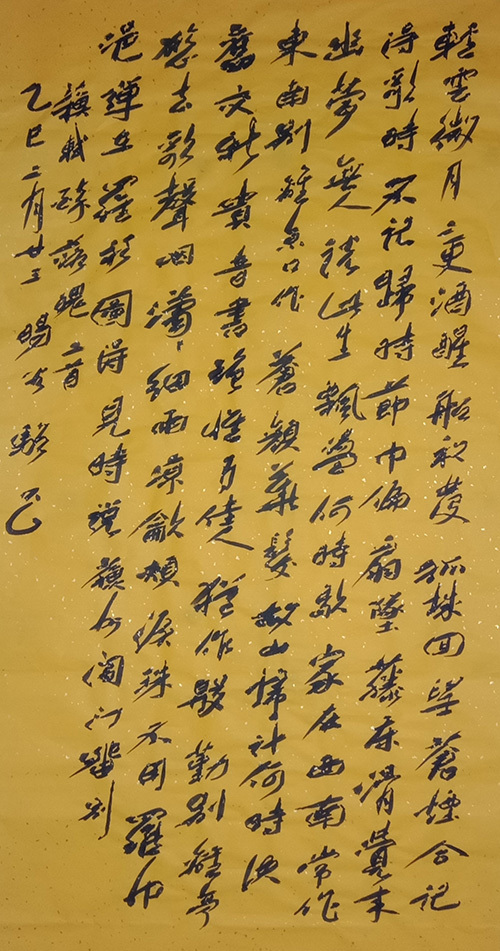 輕雲微月二更酒醒船初發孤城回望蒼煙合記
得歌時不記歸時節巾偏扇墜藤床滑覺來
幽夢無人說此生飄蕩何時歇家在西南常作
東南別離京口作蒼顏華髮故山歸計何時決
舊交新貴音書絕惟有佳人猶作殷勤別離亭
欲去歌聲咽瀟瀟細雨涼吹頰淚珠不用羅巾
浥彈在羅衫圖得見時說蘇州閶門留別
蘇軾醉落魄二首
乙巳二月廿三